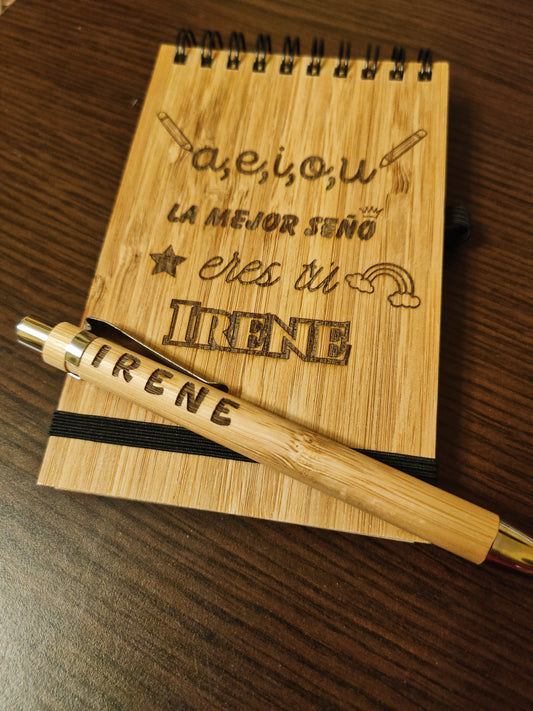 a,e,i,o,u
LA MEJOR SEÑO
eres tú
IRENE
IRENE